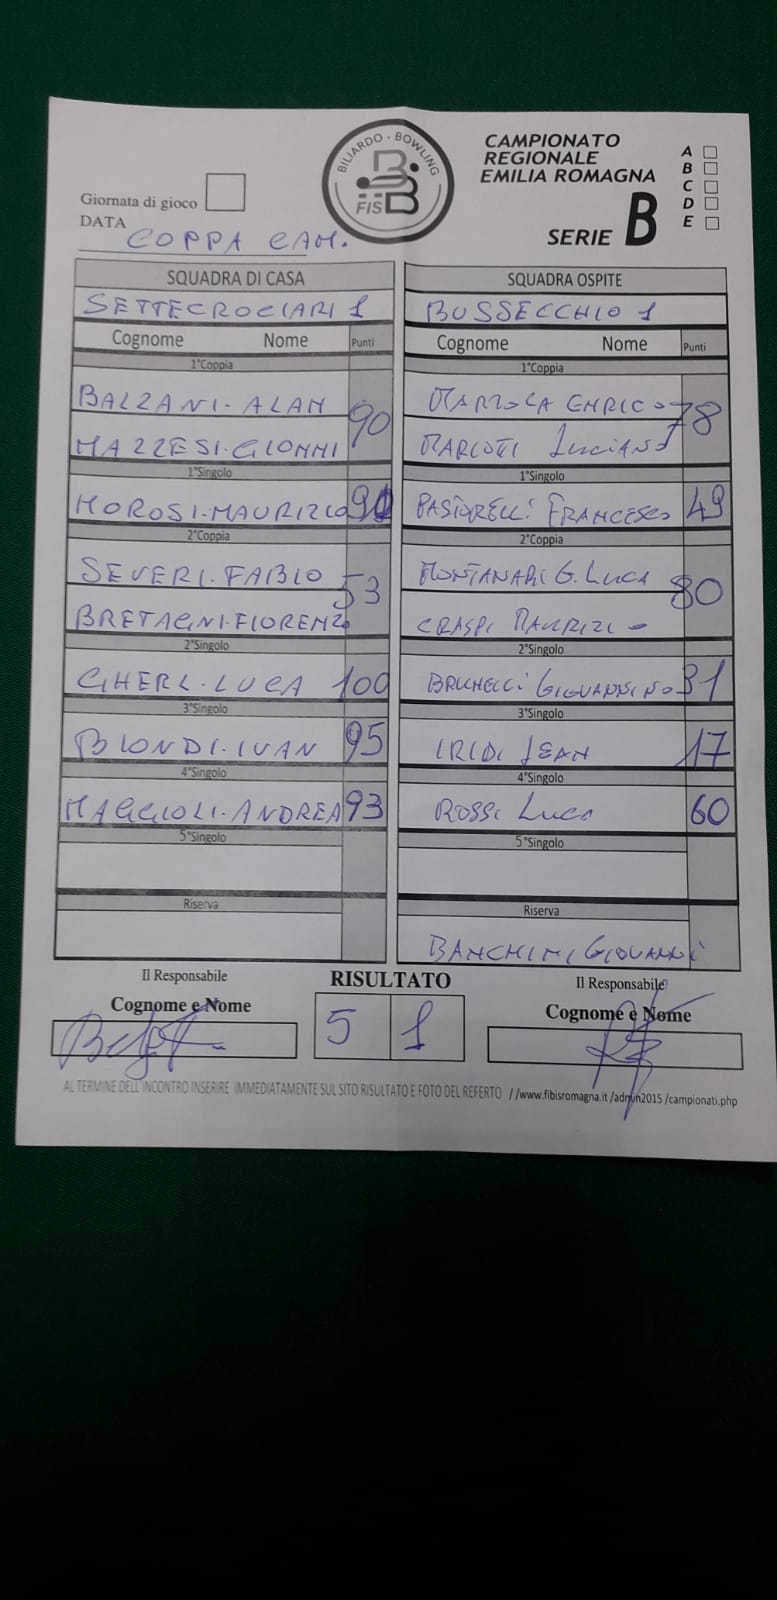 BILIARDO · BOWLING
FISBB
CAMPIONATO
REGIONALE
EMILIA ROMAGNA
SERIE B
A
B
C
D
E
Giornata di gioco
DATA
COPPA CAM.
SQUADRA DI CASA
SETTECROCIARI 1
Cognome Nome Punti
1°Coppia
BALZANI - ALAN
MAZZESI - GIONNI
90
1°Singolo
MOROSI - MAURIZIO
2°Coppia
SEVERI - FABIO
BRETAGNI - FIORENZO
53
2°Singolo
GHERL - LUCA 100
3°Singolo
BIONDI - IVAN 95
4°Singolo
MAGGIOLI - ANDREA 93
5°Singolo
Riserva
SQUADRA OSPITE
BUSSECCHIO 1
Cognome Nome Punti
1°Coppia
ENRICO
LUCIANO
78
1°Singolo
PASTORELLI FRANCESCO 49
2°Coppia
MONTANARI G. LUCA
CRASPI MAURIZIO
80
2°Singolo
BRUNELLI GIOVANNINO 31
3°Singolo
IRIDI JEAN 17
4°Singolo
ROSSI LUCA 60
5°Singolo
Riserva
BANCHINI GIOVANNI
Il Responsabile
Cognome e Nome
RISULTATO
5 1
Il Responsabile
Cognome e Nome
AL TERMINE DELL'INCONTRO INSERIRE IMMEDIATAMENTE SUL SITO RISULTATO E FOTO DEL REFERTO //www.fibisromagna.it /admin2015 /campionati.php